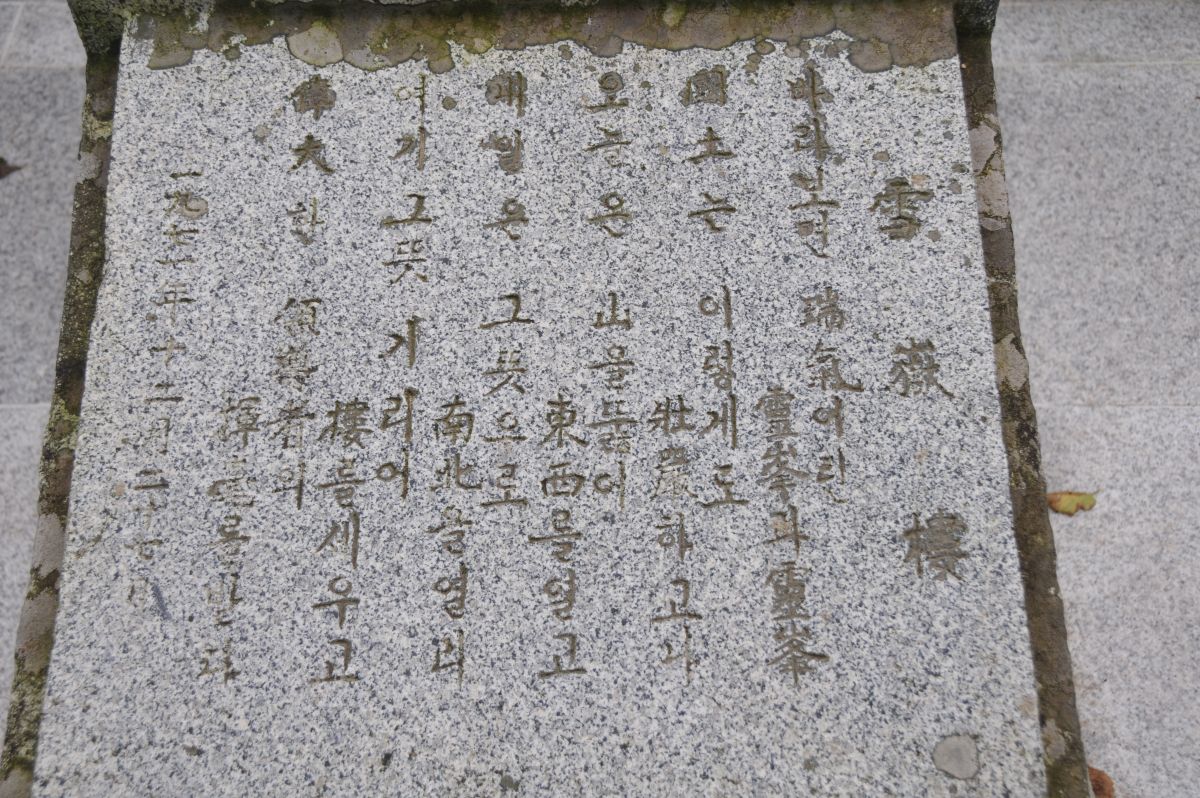 雪嶽樓
바라보면 瑞氣어린
靈峯과 靈峯
國土는 이렇게도
壯嚴하고나
오늘은 山을 뚫어
東西를 열고
내일은 그 뜻으로
南北을 열리
여기 그 뜻 기리어
樓를 세우고
偉大한 領導者의
揮毫를 받다
一九七一年十二月二十七日